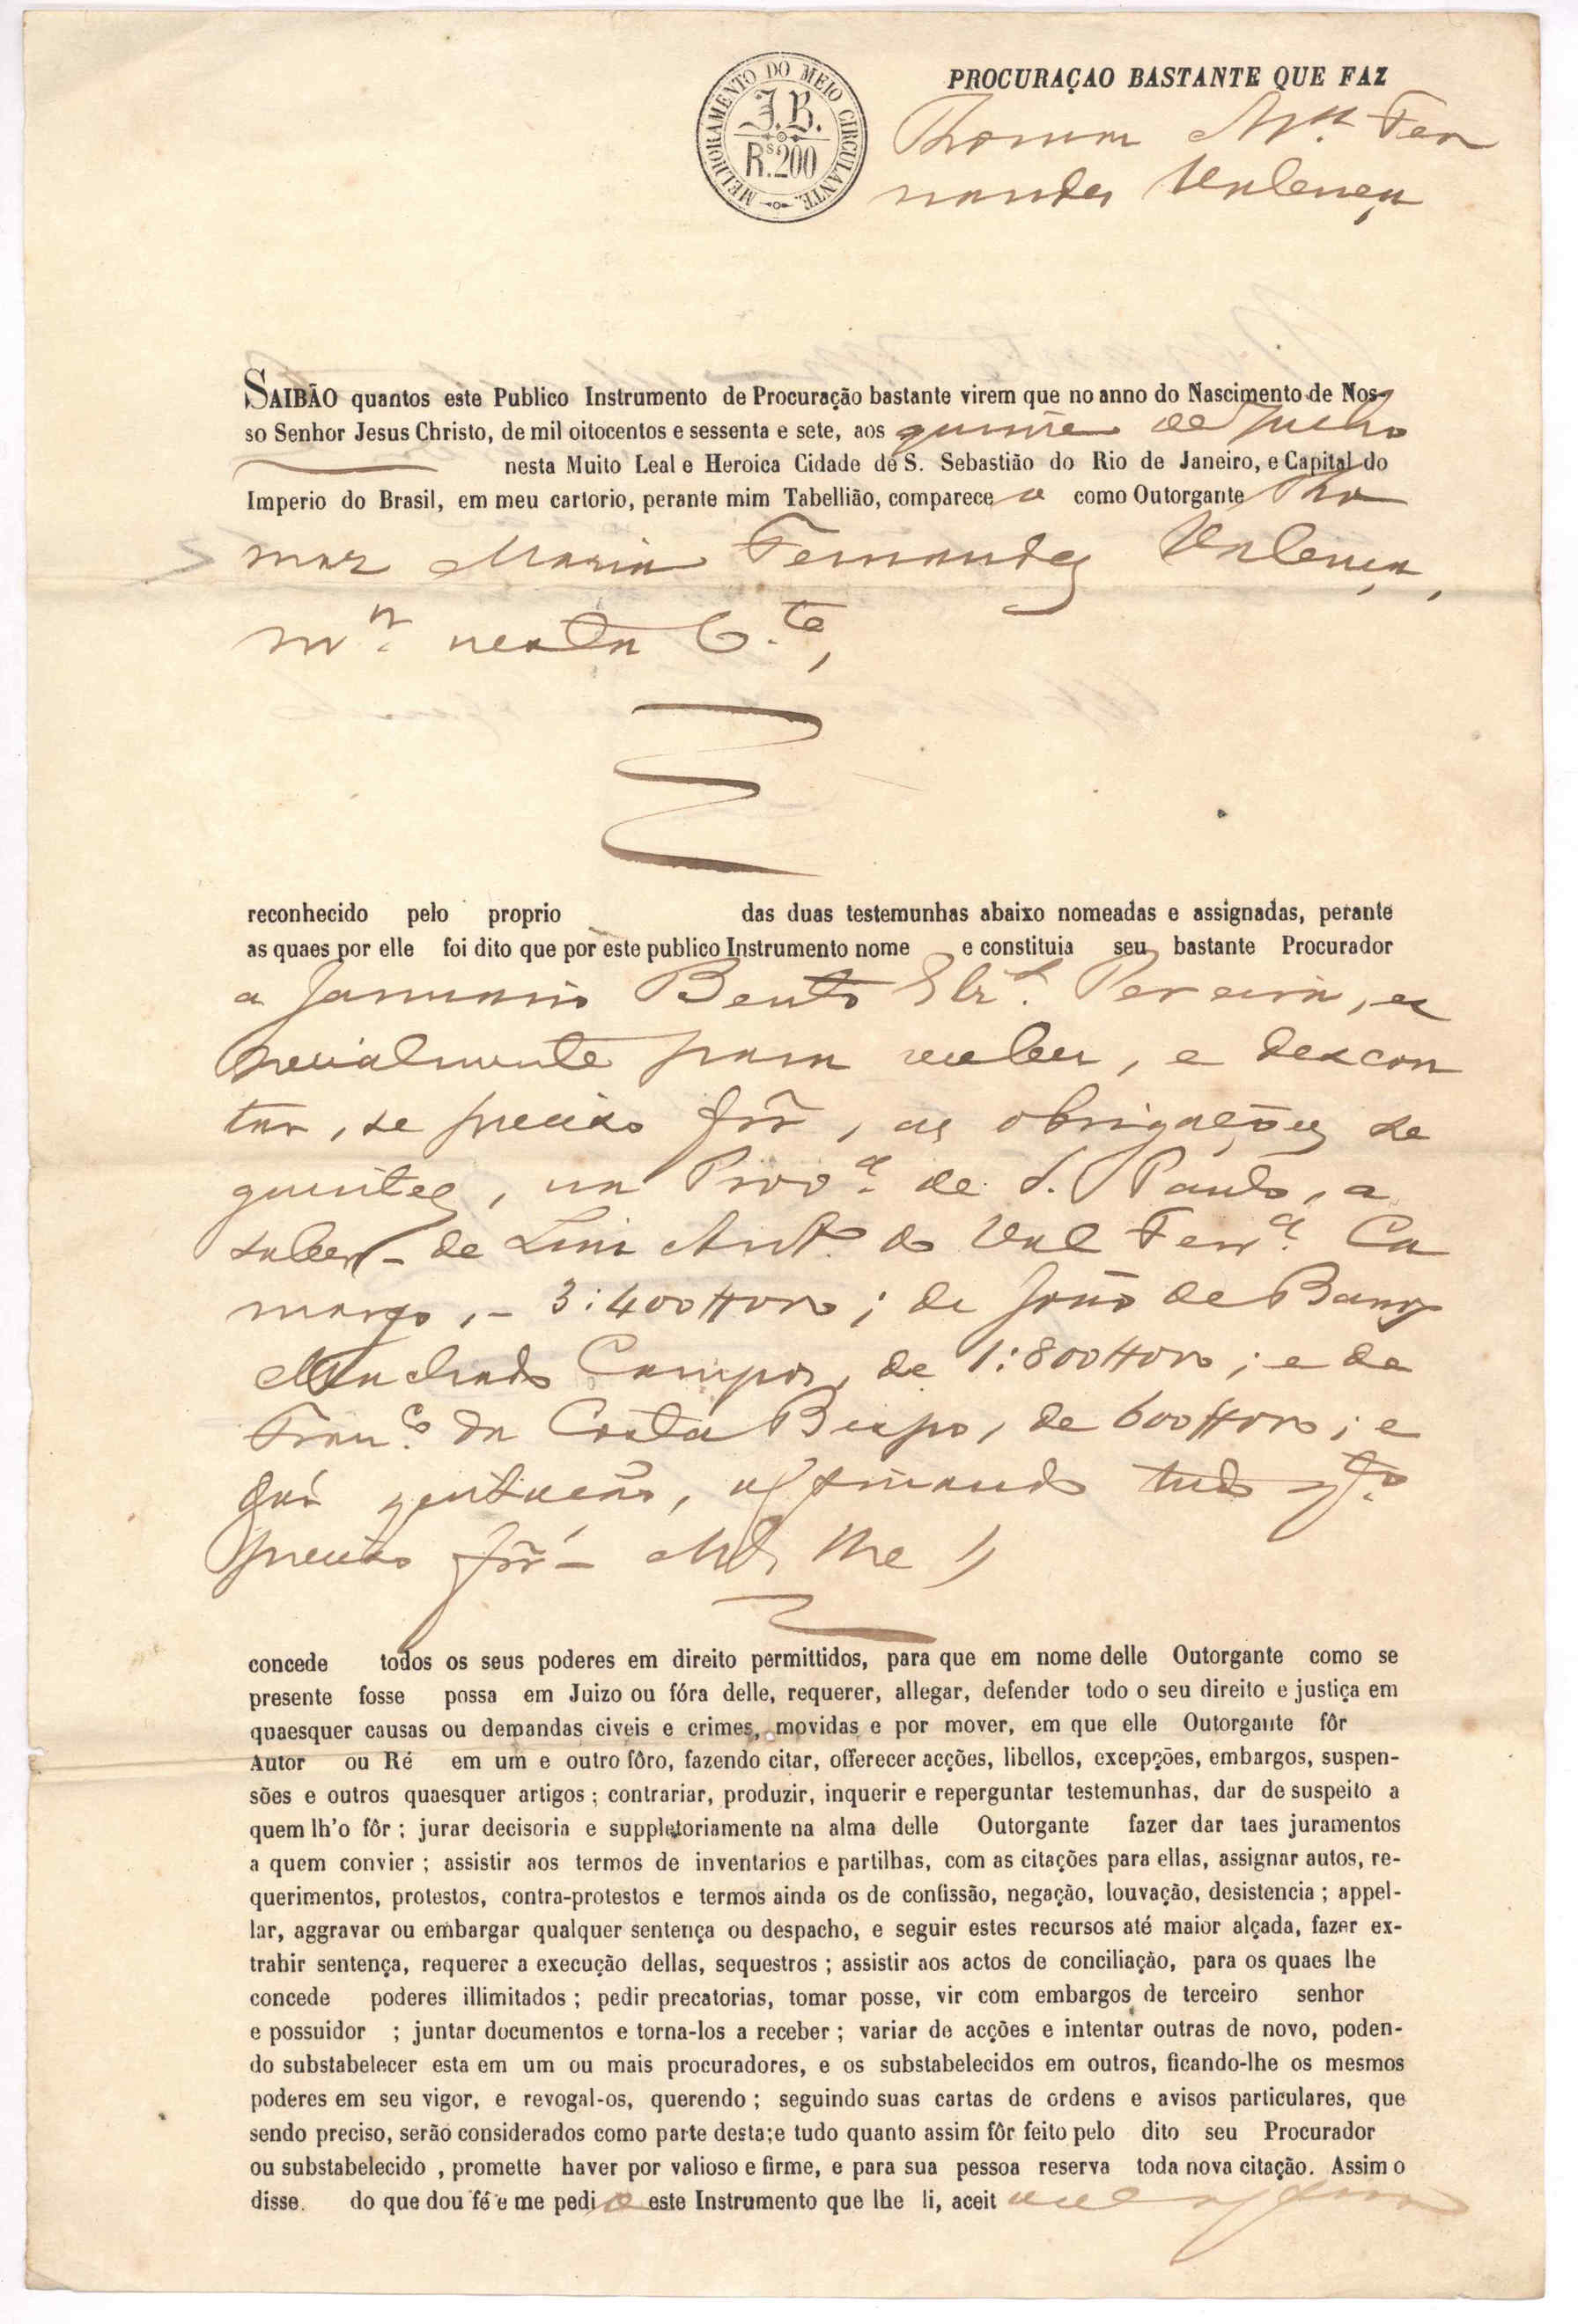 MELHORAMENTO DO MEIO CIRCULANTE.
J.B.
Rs.200
PROCURAÇAO BASTANTE QUE FAZ
Thomaz Mª Fer
nandes Valença
SAIBÃO quantos este Publico Instrumento de Procuração bastante virem que no anno do Nascimento de Nos-
so Senhor Jesus Christo, de mil oitocentos e sessenta e sete, aos quinze de Julho
nesta Muito Leal e Heroica Cidade de S. Sebastião do Rio de Janeiro, e Capital do
Imperio do Brasil, em meu cartorio, perante mim Tabellião, comparece o como Outorgante Tho
maz Maria Fernandes Valença,
mºʳ nesta C.te,
reconhecido pelo proprio das duas testemunhas abaixo nomeadas e assignadas, perante
as quaes por elle foi dito que por este publico Instrumento nome e constituia seu bastante Procurador
a Januario Bento Pereira, es
pecialmente para receber, e descon
tar, se preciso fôr, as obrigações se
guintes, na Provª de S. Paulo, a
saber – de Luis Antº do Val Ferrª Ca
margo, – 3:400$000; de João de Barros
Machado Campos, de 1:800$000; e de
Franco da Costa Bispo, de 600$000; e
dará quitação, assignando tudo qto
preciso fôr –
concede todos os seus poderes em direito permittidos, para que em nome delle Outorgante como se
presente fosse possa em Juizo ou fóra delle, requerer, allegar, defender todo o seu direito e justiça em
quaesquer causas ou demandas civeis e crimes, movidas e por mover, em que elle Outorgante fôr
Autor ou Ré em um e outro fôro, fazendo citar, offerecer acções, libellos, excepções, embargos, suspen-
sões e outros quaesquer artigos ; contrariar, produzir, inquerir e reperguntar testemunhas, dar de suspeito a
quem lh'o fôr ; jurar decisoria e suppletoriamente na alma delle Outorgante fazer dar taes juramentos
a quem convier ; assistir aos termos de inventarios e partilhas, com as citações para ellas, assignar autos, re-
querimentos, protestos, contra-protestos e termos ainda os de confissão, negação, louvação, desistencia ; appel-
lar, aggravar ou embargar qualquer sentença ou despacho, e seguir estes recursos até maior alçada, fazer ex-
trahir sentença, requerer a execução dellas, sequestros ; assistir aos actos de conciliação, para os quaes lhe
concede poderes illimitados ; pedir precatorias, tomar posse, vir com embargos de terceiro senhor
e possuidor ; juntar documentos e torna-los a receber ; variar de acções e intentar outras de novo, poden-
do substabelecer esta em um ou mais procuradores, e os substabelecidos em outros, ficando-lhe os mesmos
poderes em seu vigor, e revogal-os, querendo ; seguindo suas cartas de ordens e avisos particulares, que
sendo preciso, serão considerados como parte desta;e tudo quanto assim fôr feito pelo dito seu Procurador
ou substabelecido , promette haver por valioso e firme, e para sua pessoa reserva toda nova citação. Assim o
disse. do que dou fé e me pedi o este Instrumento que lhe li, aceit